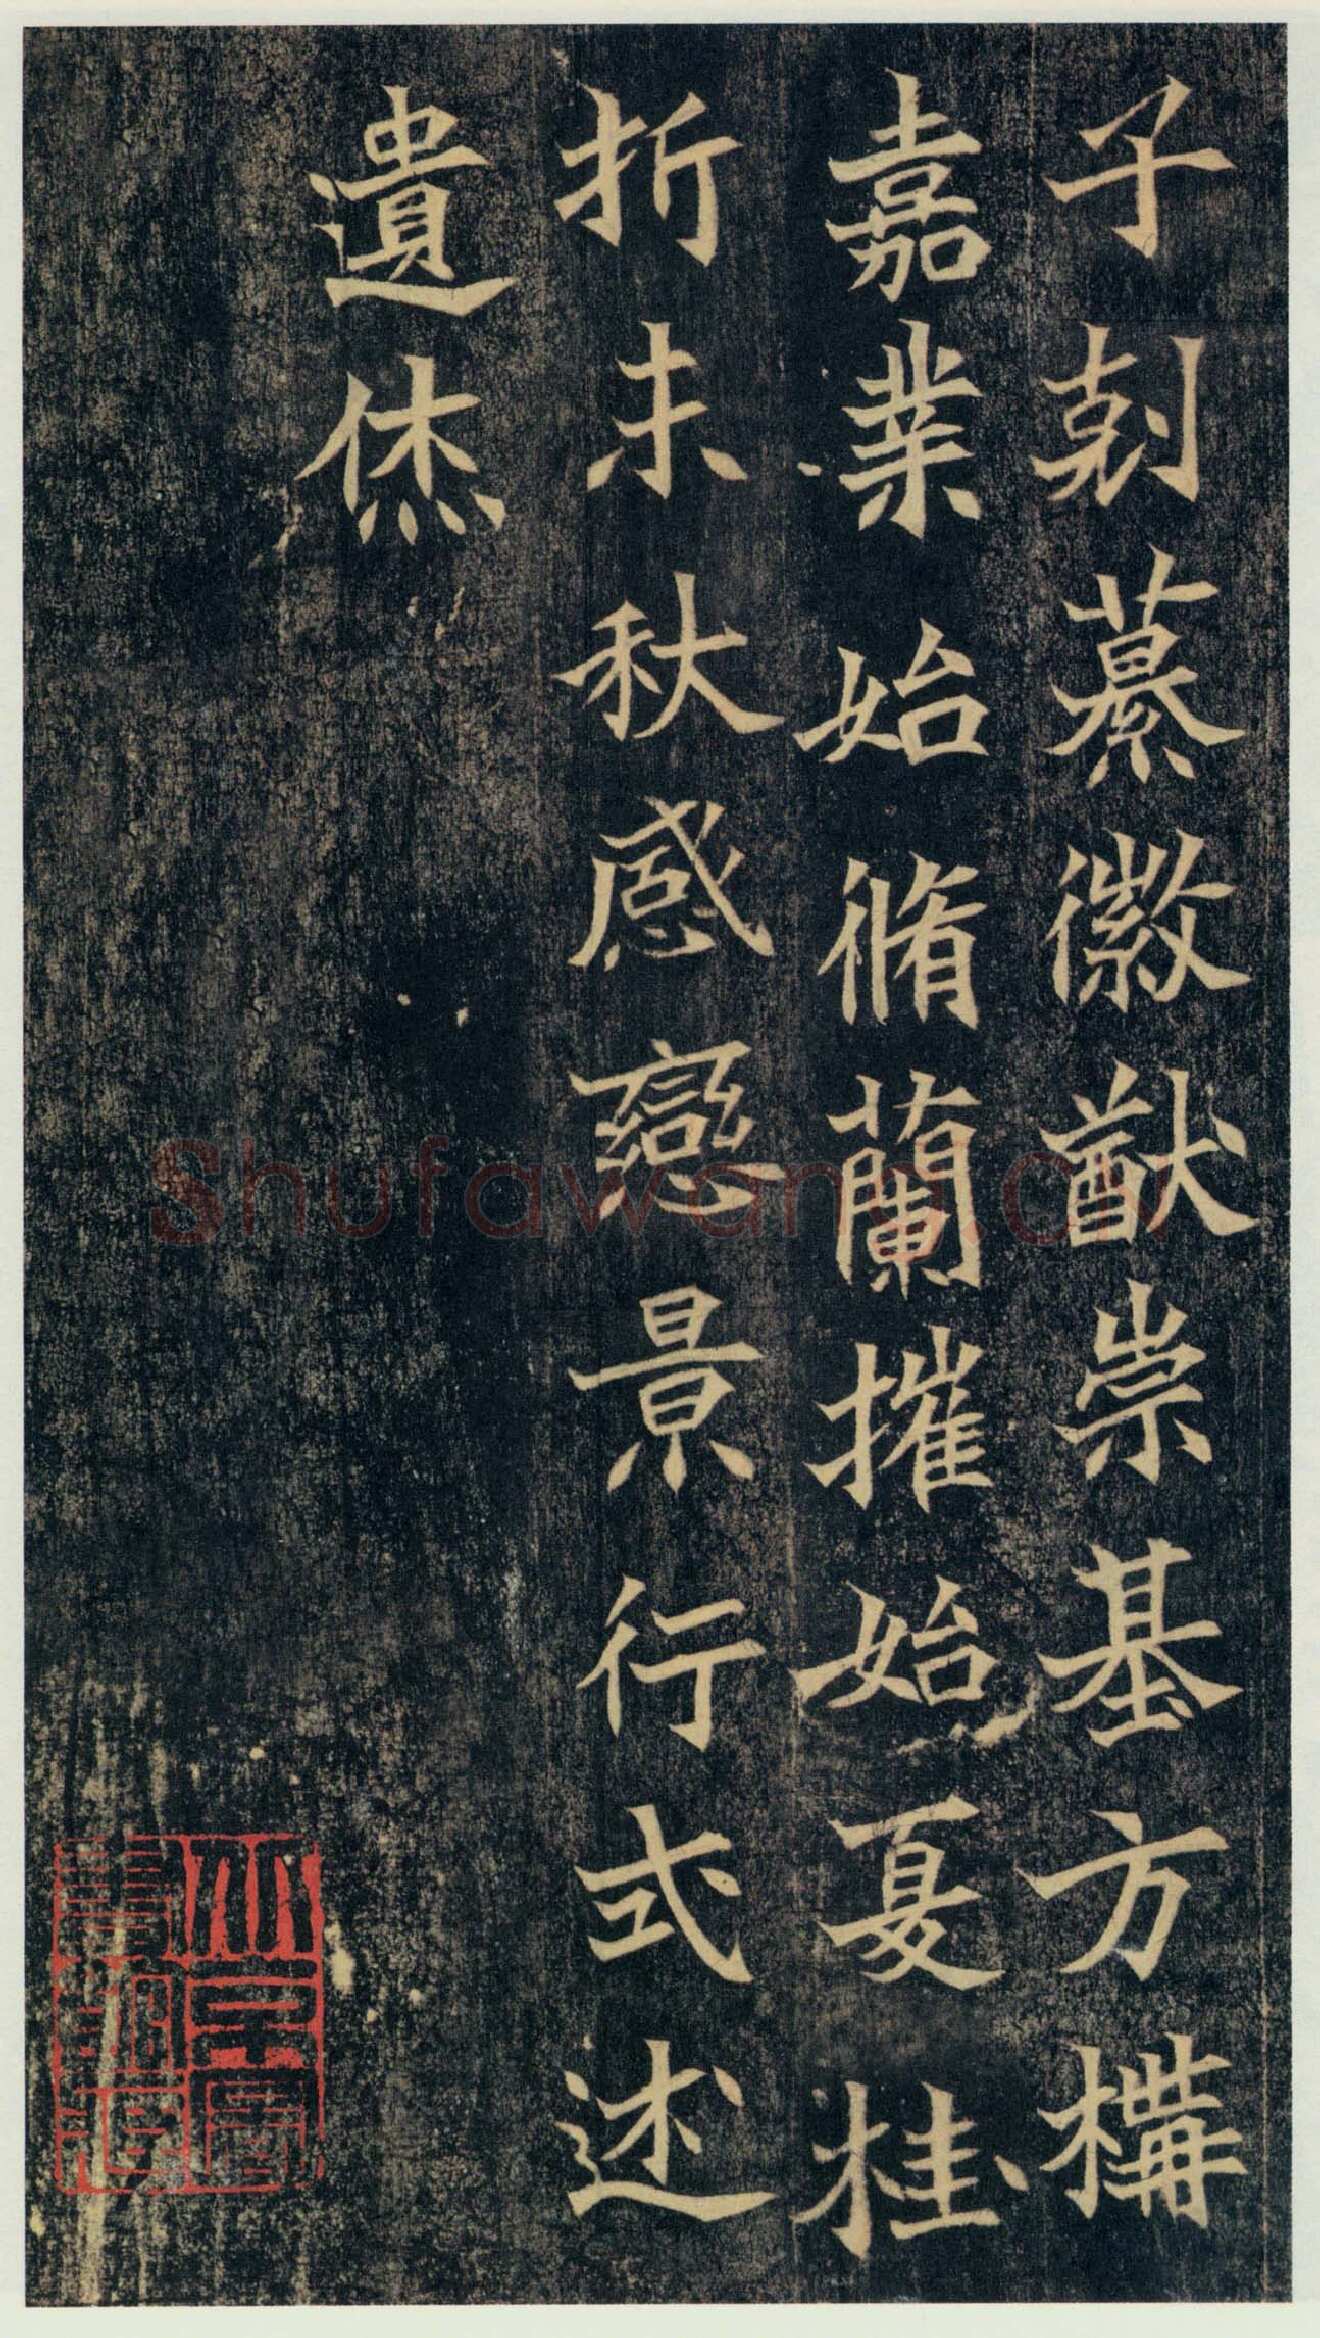 子剋纂徽猷崇基方構
嘉業始脩蘭摧始夏桂
折未秋感戀景行式述
遺烋
Shufawang.cn